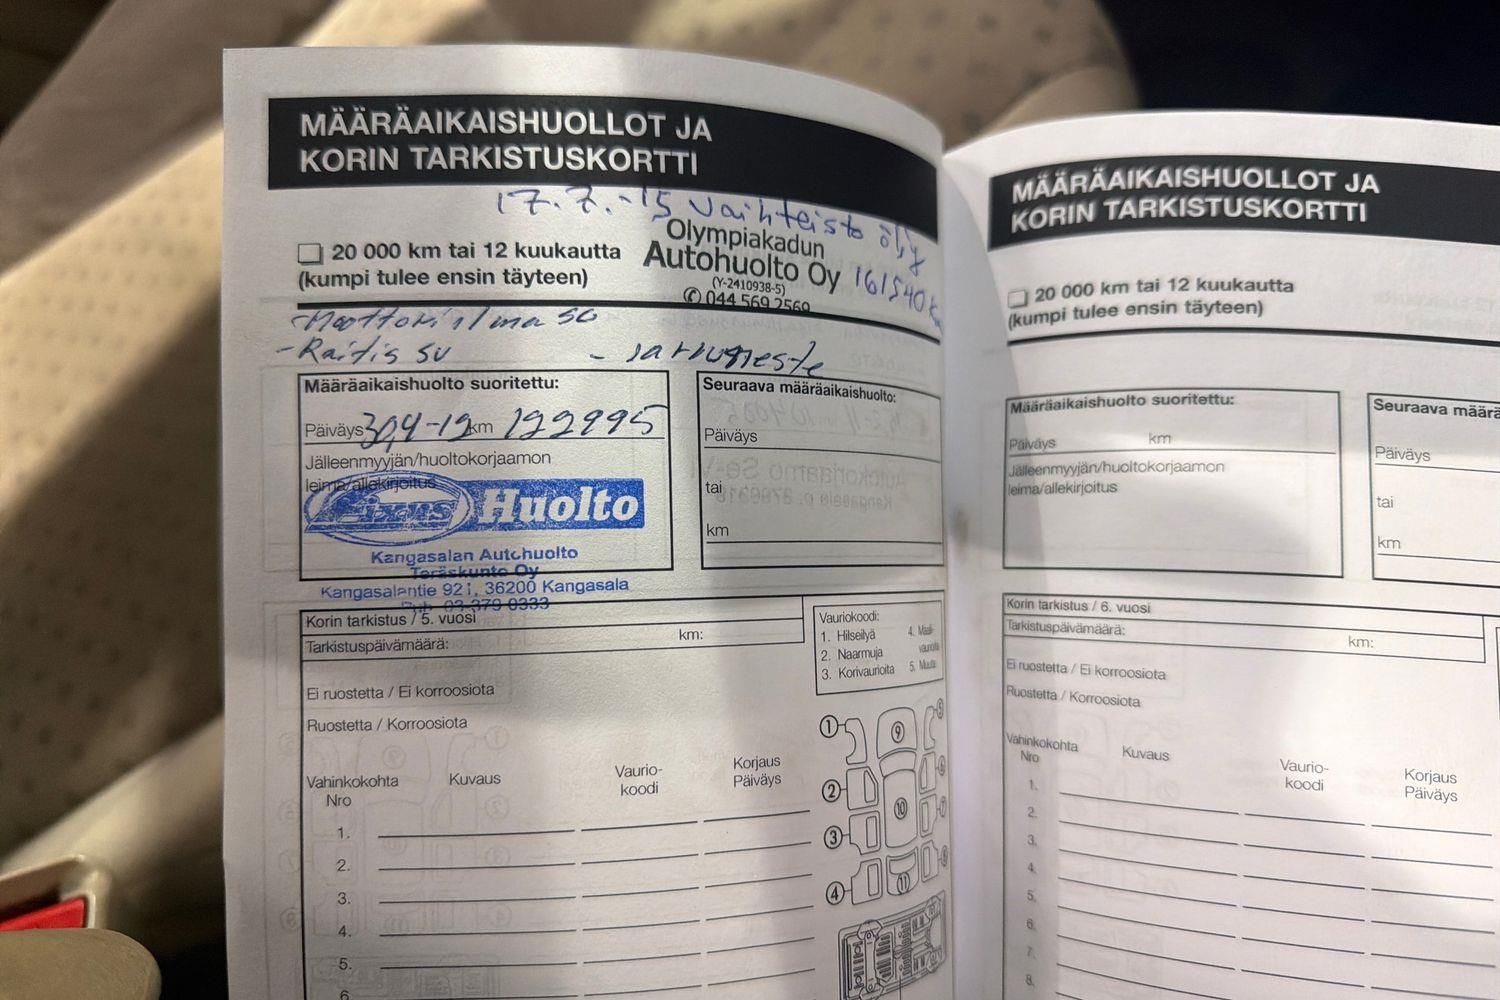 MÄÄRÄAIKAISHUOLLOT JA
KORIN TARKISTUSKORTTI
17.7.-15 Vaihteisto öljy
Olympiakadun
Autohuolto Oy
(Y-2410938-5)
044 569 2569
161540
20 000 km tai 12 kuukautta
(kumpi tulee ensin täyteen)
-Moottorin ilma su
-Raitis su - Jarruneste
Määräaikaishuolto suoritettu:
Päiväys 30,4-12 km 122995
Jälleenmyyjän/huoltokorjaamon
leima/allekirjoitus
Fixus Huolto
Kangasalan Autohuolto
Teräskunto Oy
Kangasalantie 921, 36200 Kangasala
Puh. 03-379 0333
Seuraava määräaikaishuolto:
Päiväys
tai
km
Korin tarkistus / 5. vuosi
Tarkistuspäivämäärä: km:
Ei ruostetta / Ei korroosiota
Ruostetta / Korroosiota
Vauriokoodi:
1. Hilseilyä 4. Maali-
vaurioita
2. Naarmuja
3. Korivaurioita 5. Muuta
Vahinkokohta Kuvaus Vaurio- Korjaus
Nro koodi Päiväys
1.
2.
3.
4.
5.
6
1 2 3 4 5 6 7 8 9 10 11
MÄÄRÄAIKAISHUOLLOT JA
KORIN TARKISTUSKORTTI
20 000 km tai 12 kuukautta
(kumpi tulee ensin täyteen)
Määräaikaishuolto suoritettu:
Päiväys km
Jälleenmyyjän/huoltokorjaamon
leima/allekirjoitus
Seuraava määrä
Päiväys
tai
km
Korin tarkistus / 6. vuosi
Tarkistuspäivämäärä: km:
Ei ruostetta / Ei korroosiota
Ruostetta / Korroosiota
Vahinkokohta Kuvaus Vaurio- Korjaus
Nro koodi Päiväys
1.
2.
3.
4.
5.
6.
7.
8.